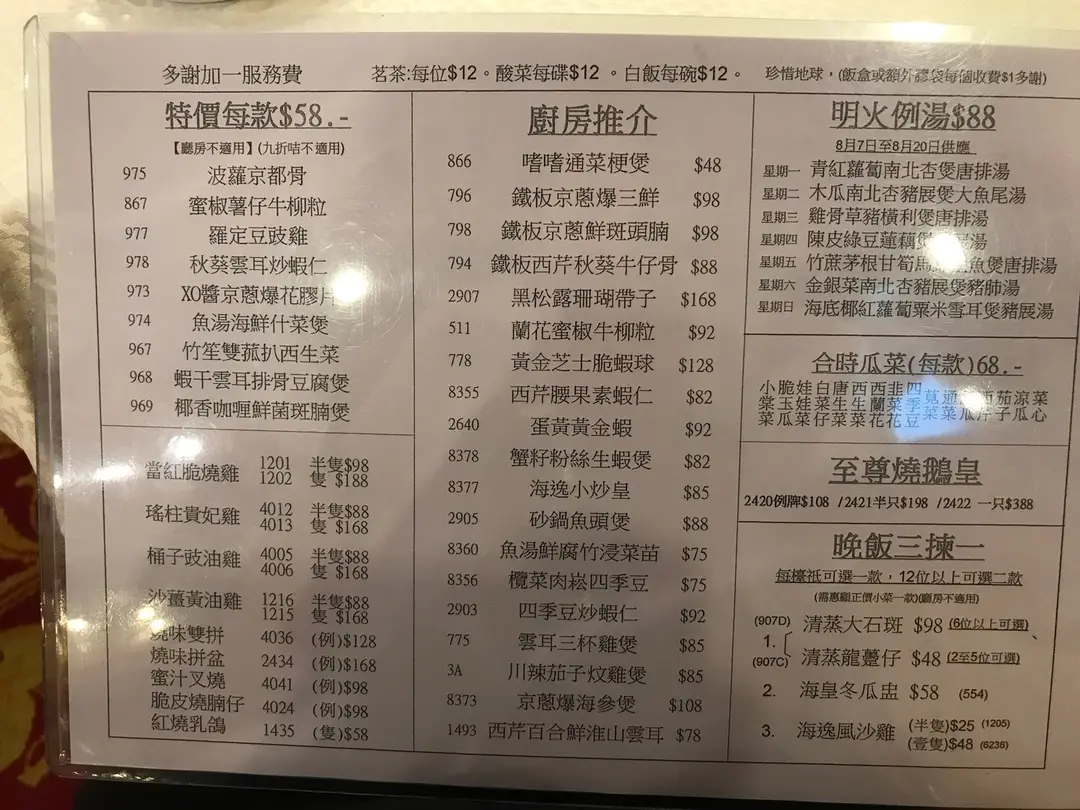 多謝加一服務費
茗茶:每位$12。酸菜每碟$12。白飯每碗$12。
珍惜地球，(飯盒或額外膠袋每個收費$1多謝)
特價每款$58.-
【廳房不適用】(九折咭不適用)
975 波蘿京都骨
867 蜜椒薯仔牛柳粒
977 羅定豆豉雞
978 秋葵雲耳炒蝦仁
973 XO醬京蔥爆花膠
974 魚湯海鮮什菜煲
967 竹笙雙菰扒西生菜
968 蝦干雲耳排骨豆腐煲
969 椰香咖喱鮮菌斑腩煲
當紅脆燒雞 1201 半隻$98
1202 隻 $188
瑤柱貴妃雞 4012 半隻$88
4013 隻 $168
桶子豉油雞 4005 半隻$88
4006 隻 $168
沙薑黃油雞 1216 半隻$88
1215 隻 $168
燒味雙拼 4036 (例)$128
燒味拼盆 2434 (例)$168
蜜汁叉燒 4041 (例)$98
脆皮燒腩仔 4024 (例)$98
紅燒乳鴿 1435 (隻)$58
廚房推介
866 嗜嗜通菜梗煲 $48
796 鐵板京蔥爆三鮮 $98
798 鐵板京蔥鮮斑頭腩 $98
794 鐵板西芹秋葵牛仔骨 $88
2907 黑松露珊瑚帶子 $168
511 蘭花蜜椒牛柳粒 $92
778 黃金芝士脆蝦球 $128
8355 西芹腰果素蝦仁 $82
2640 蛋黃黃金蝦 $92
8378 蟹籽粉絲生蝦煲 $82
8377 海逸小炒皇 $85
2905 砂鍋魚頭煲 $88
8360 魚湯鮮腐竹浸菜苗 $75
8356 欖菜肉崧四季豆 $75
2903 四季豆炒蝦仁 $92
775 雲耳三杯雞煲 $85
3A 川辣茄子炆雞煲 $85
8373 京蔥爆海參煲 $108
1493 西芹百合鮮淮山雲耳 $78
明火例湯$88
8月7日至8月20日供應
星期一 青紅蘿蔔南北杏煲唐排湯
星期二 木瓜南北杏豬展煲大魚尾湯
星期三 雞骨草豬橫利煲唐排湯
星期四 陳皮綠豆蓮藕湯
星期五 竹蔗茅根甘筍魚煲唐排湯
星期六 金銀菜南北杏豬展煲豬肺湯
星期日 海底椰紅蘿蔔粟米雪耳煲豬展湯
合時瓜菜(每款)68.-
小脆娃白唐西西韭四 通 茄涼菜
棠玉娃菜生生蘭菜季 芹子瓜心
菜瓜菜仔菜菜花花豆
至尊燒鵝皇
2420例牌$108 /2421半只$198 /2422 一只$388
晚飯三揀一
每檯祇可選一款，12位以上可選二款
(需惠顧正價小菜一款)(廳房不適用)
(907D) 清蒸大石斑 $98 (6位以上可選)
1.
(907C) 清蒸龍躉仔 $48 (2至5位可選)
2. 海皇冬瓜盅 $58 (554)
3. 海逸風沙雞 (半隻)$25 (1205)
(壹隻)$48 (6236)